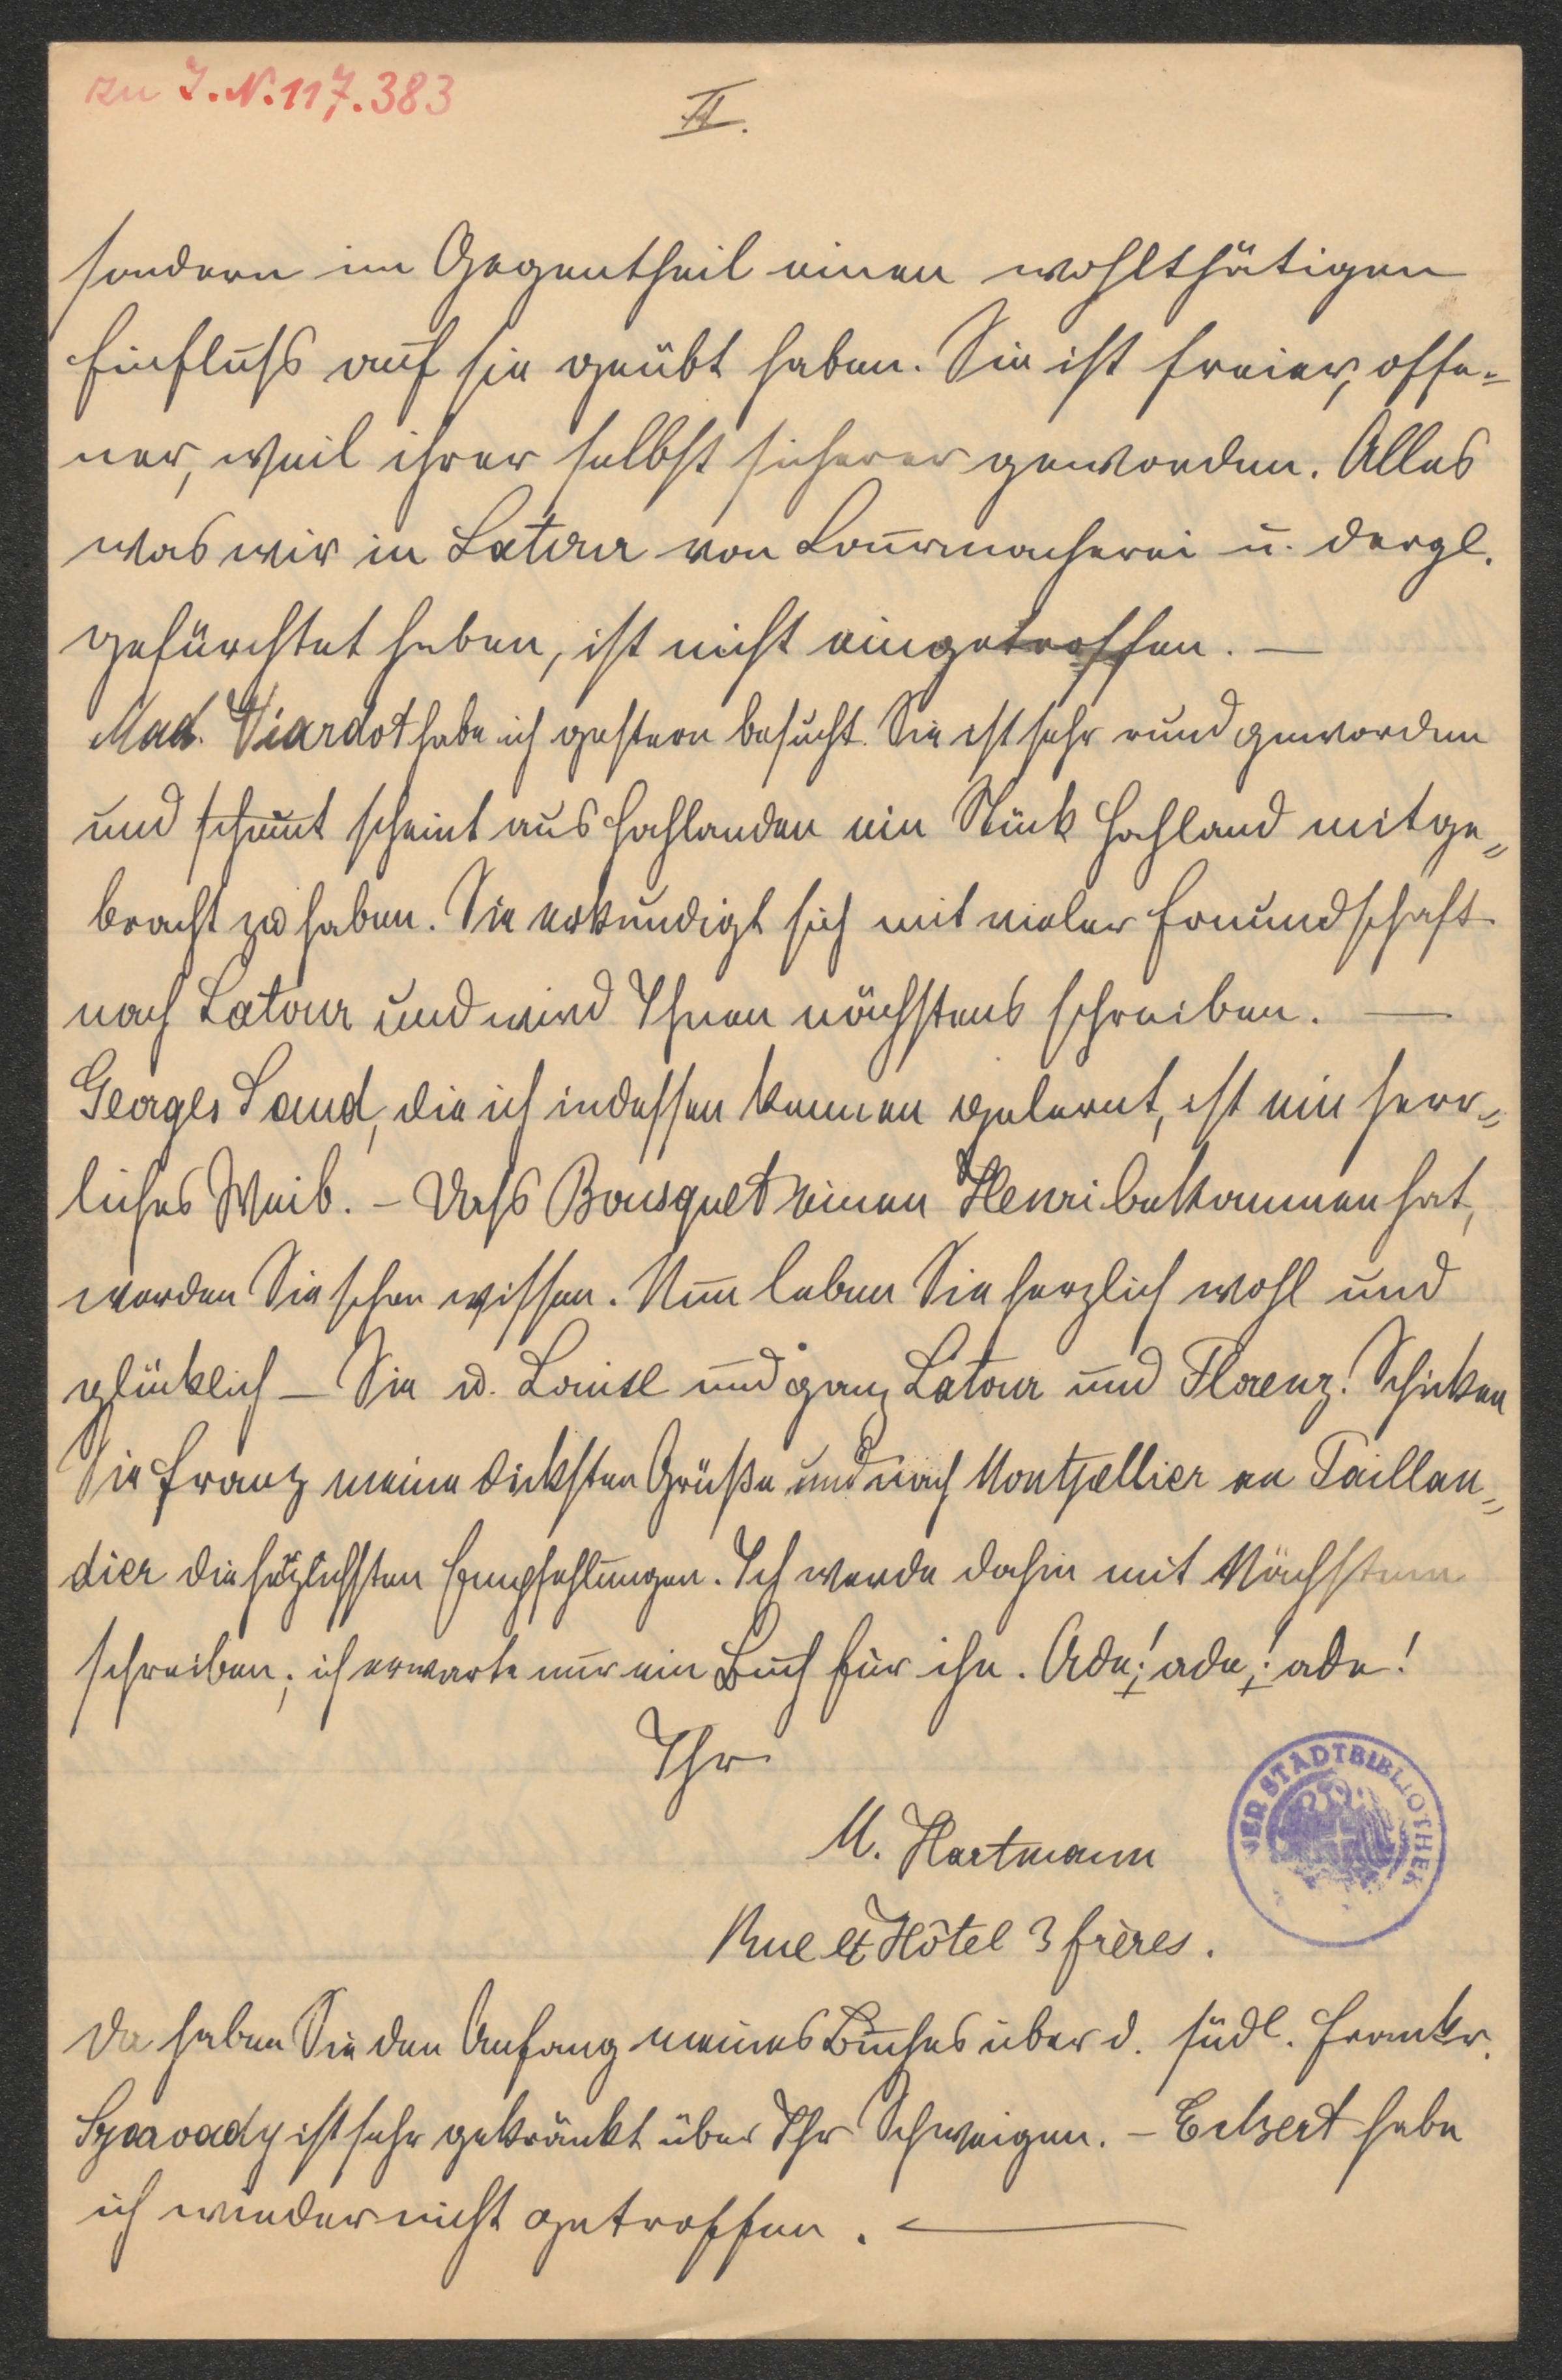 zu I.N.117.383
II.
sondern im Gegentheil einen wohlthätigen
Einfluss auf sie geübt haben. Sie ist freier, offe-
ner, weil ihrer selbst sicherer geworden. Alles
was wir in Latour von Courmacherei u. dergl.
gefürchtet haben, ist nicht eingetroffen. —
Mad. Viardot habe ich gestern besucht. Sie ist sehr rund geworden
und scheint scheint aus Hohlanden ein Stück Hohland mitge-
bracht zu haben. Sie erkundigt sich mit vieler Freundschaft
nach Latour und wird Ihnen nächstens schreiben. —
Georges Sand, die ich indessen kennen gelernt, ist ein herr-
liches Weib. – Dass Bousquet einen Henri bekommen hat,
werden Sie schon wissen. Nun leben Sie herzlich wohl und
glücklich – Sie u. Louise und ganz Latour und Florenz! Schicken
Sie Franz meine dicksten Grüße und nach Montpellier an Taillan-
dier die herzlichsten Empfehlungen. Ich werde dahin mit Nächstem
schreiben; ich erwarte nur ein Buch für ihn. Ade! ade! ade!
Ihr
M. Hartmann
Rue et Hôtel 3 frères.
Da haben Sie den Anfang meines Buches über d. südl. Frankr.
Szarvady ist sehr gekränkt über Ihr Schweigen. – Eckert habe
ich wieder nicht getroffen. —
STADTBIBLIOTHEK